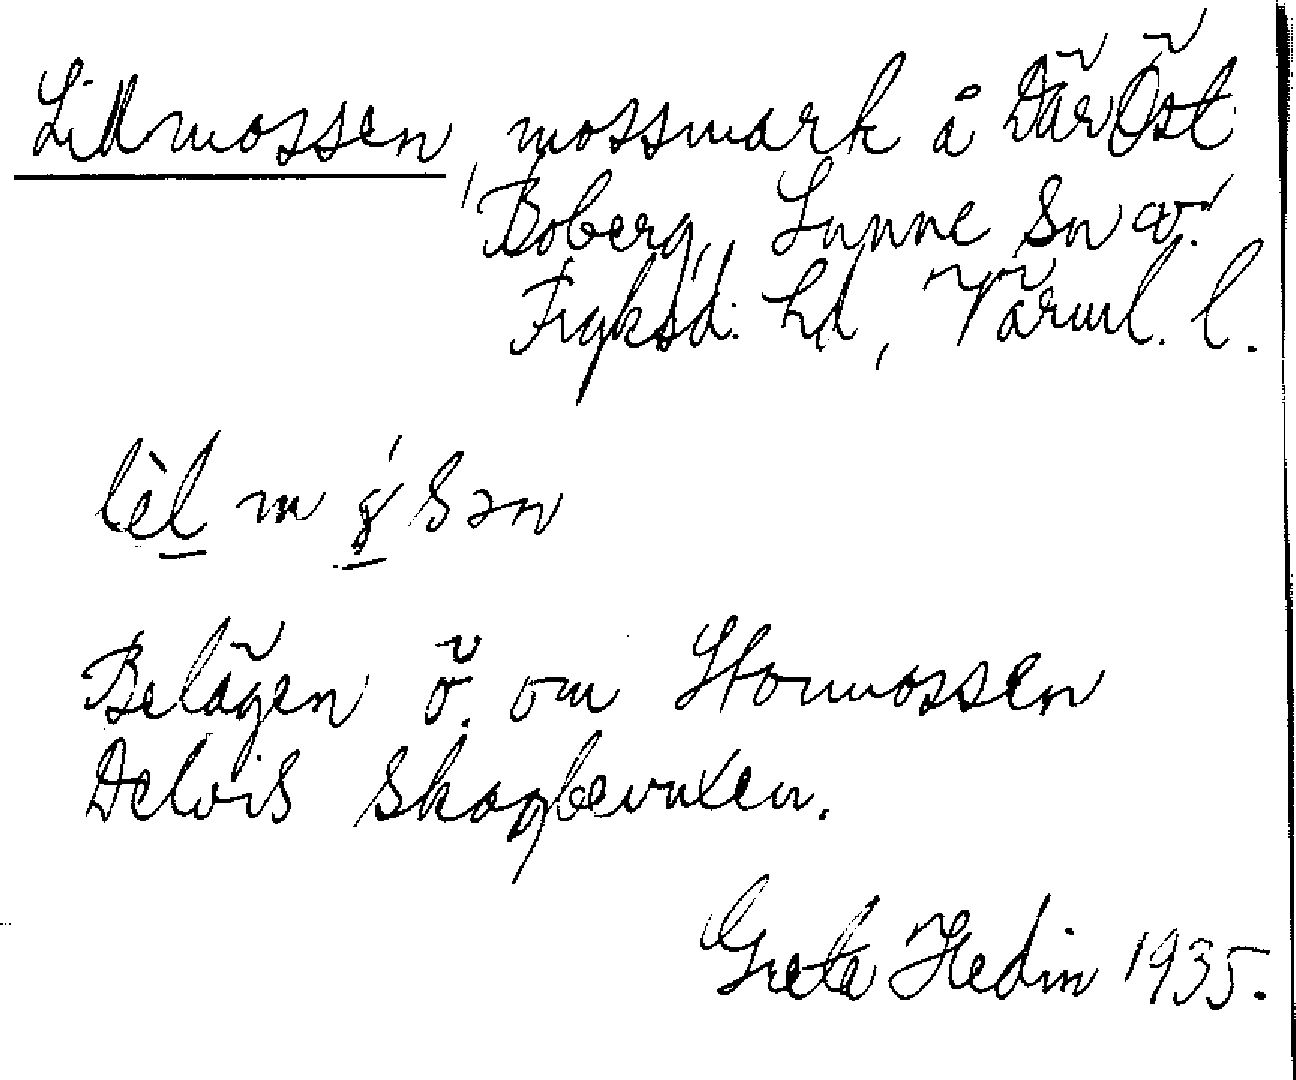 Lillmossen, mossmark å Där Öst.
Boberg, Sunne sn o.
Fryksd. hd, Värml. l.
lèl m sən
Belägen ö. om Stormossen
Delvis skogbevuxen.
Greta Hedin 1935.